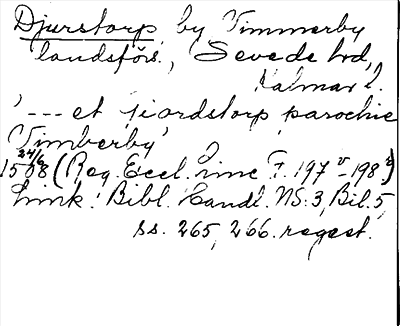 Djurstorp, by Vimmerby
landsförs., Sevede hd,
Kalmar l.
'--- et jiordstorp parochie
Vimberby'
24/6
1508 (Reg. Eccl. Linc F. 197 v - 198 r)
Link. Bibl. Handl. NS. 3, Bil. 5
ss. 265, 266. regest.